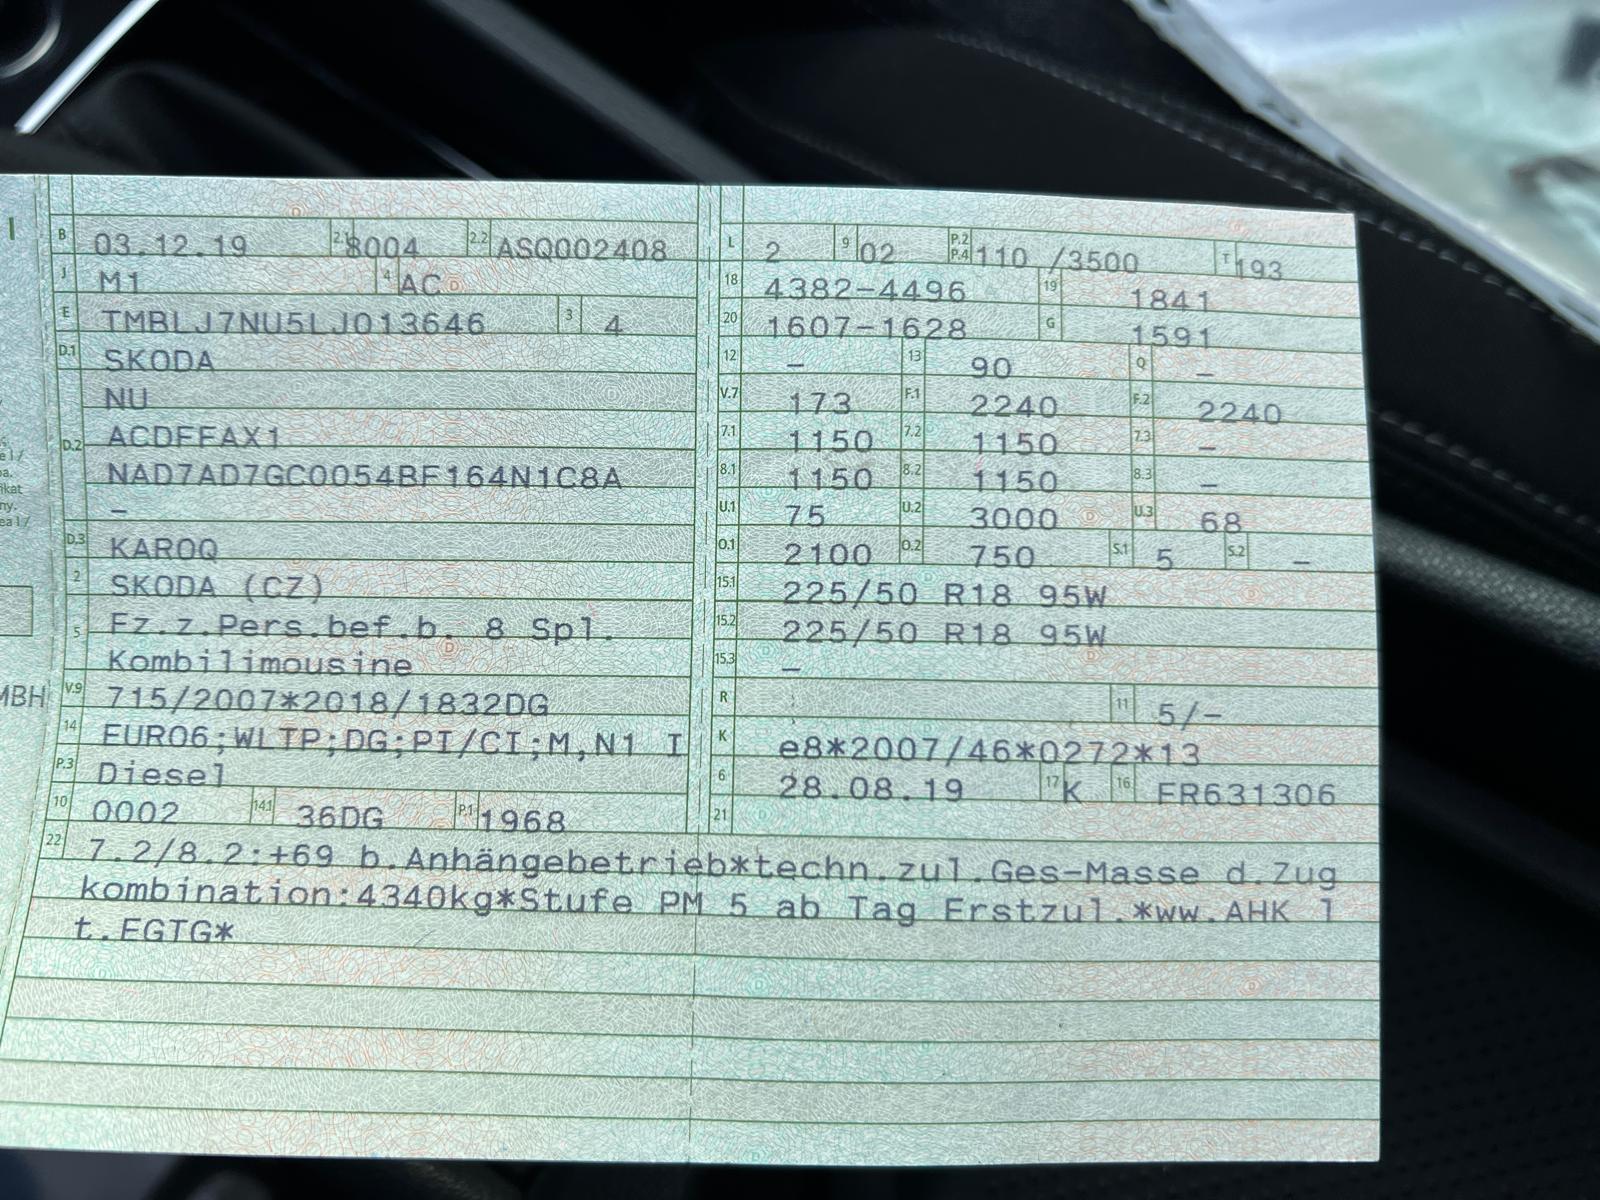 B 03.12.19 2.1 8004 2.2 ASQ002408
J M1 4 AC
E TMBLJ7NU5LJ013646 3 4
D.1 SKODA
NU
D.2 ACDFFAX1
NAD7AD7GC0054BF164N1C8A
–
D.3 KAROQ
2 SKODA (CZ)
5 Fz.z.Pers.bef.b. 8 Spl.
Kombilimousine
V.9 715/2007*2018/1832DG
14 EURO6;WLTP;DG;PI/CI;M,N1 I
P.3 Diesel
10 0002 14.1 36DG P.1 1968
L 2 9 02 P.2 P.4 110 /3500 T 193
18 4382-4496 19 1841
20 1607-1628 G 1591
12 – 13 90 Q –
V.7 173 F.1 2240 F.2 2240
7.1 1150 7.2 1150 7.3 –
8.1 1150 8.2 1150 8.3 –
U.1 75 U.2 3000 U.3 68
O.1 2100 O.2 750 S.1 5 S.2 –
15.1 225/50 R18 95W
15.2 225/50 R18 95W
15.3 –
R 11 5/-
K e8*2007/46*0272*13
6 28.08.19 17 K 16 FR631306
21
22 7.2/8.2:+69 b.Anhängebetrieb*techn.zul.Ges-Masse d.Zug
kombination:4340kg*Stufe PM 5 ab Tag Erstzul.*ww.AHK l
t.EGTG*
MBH